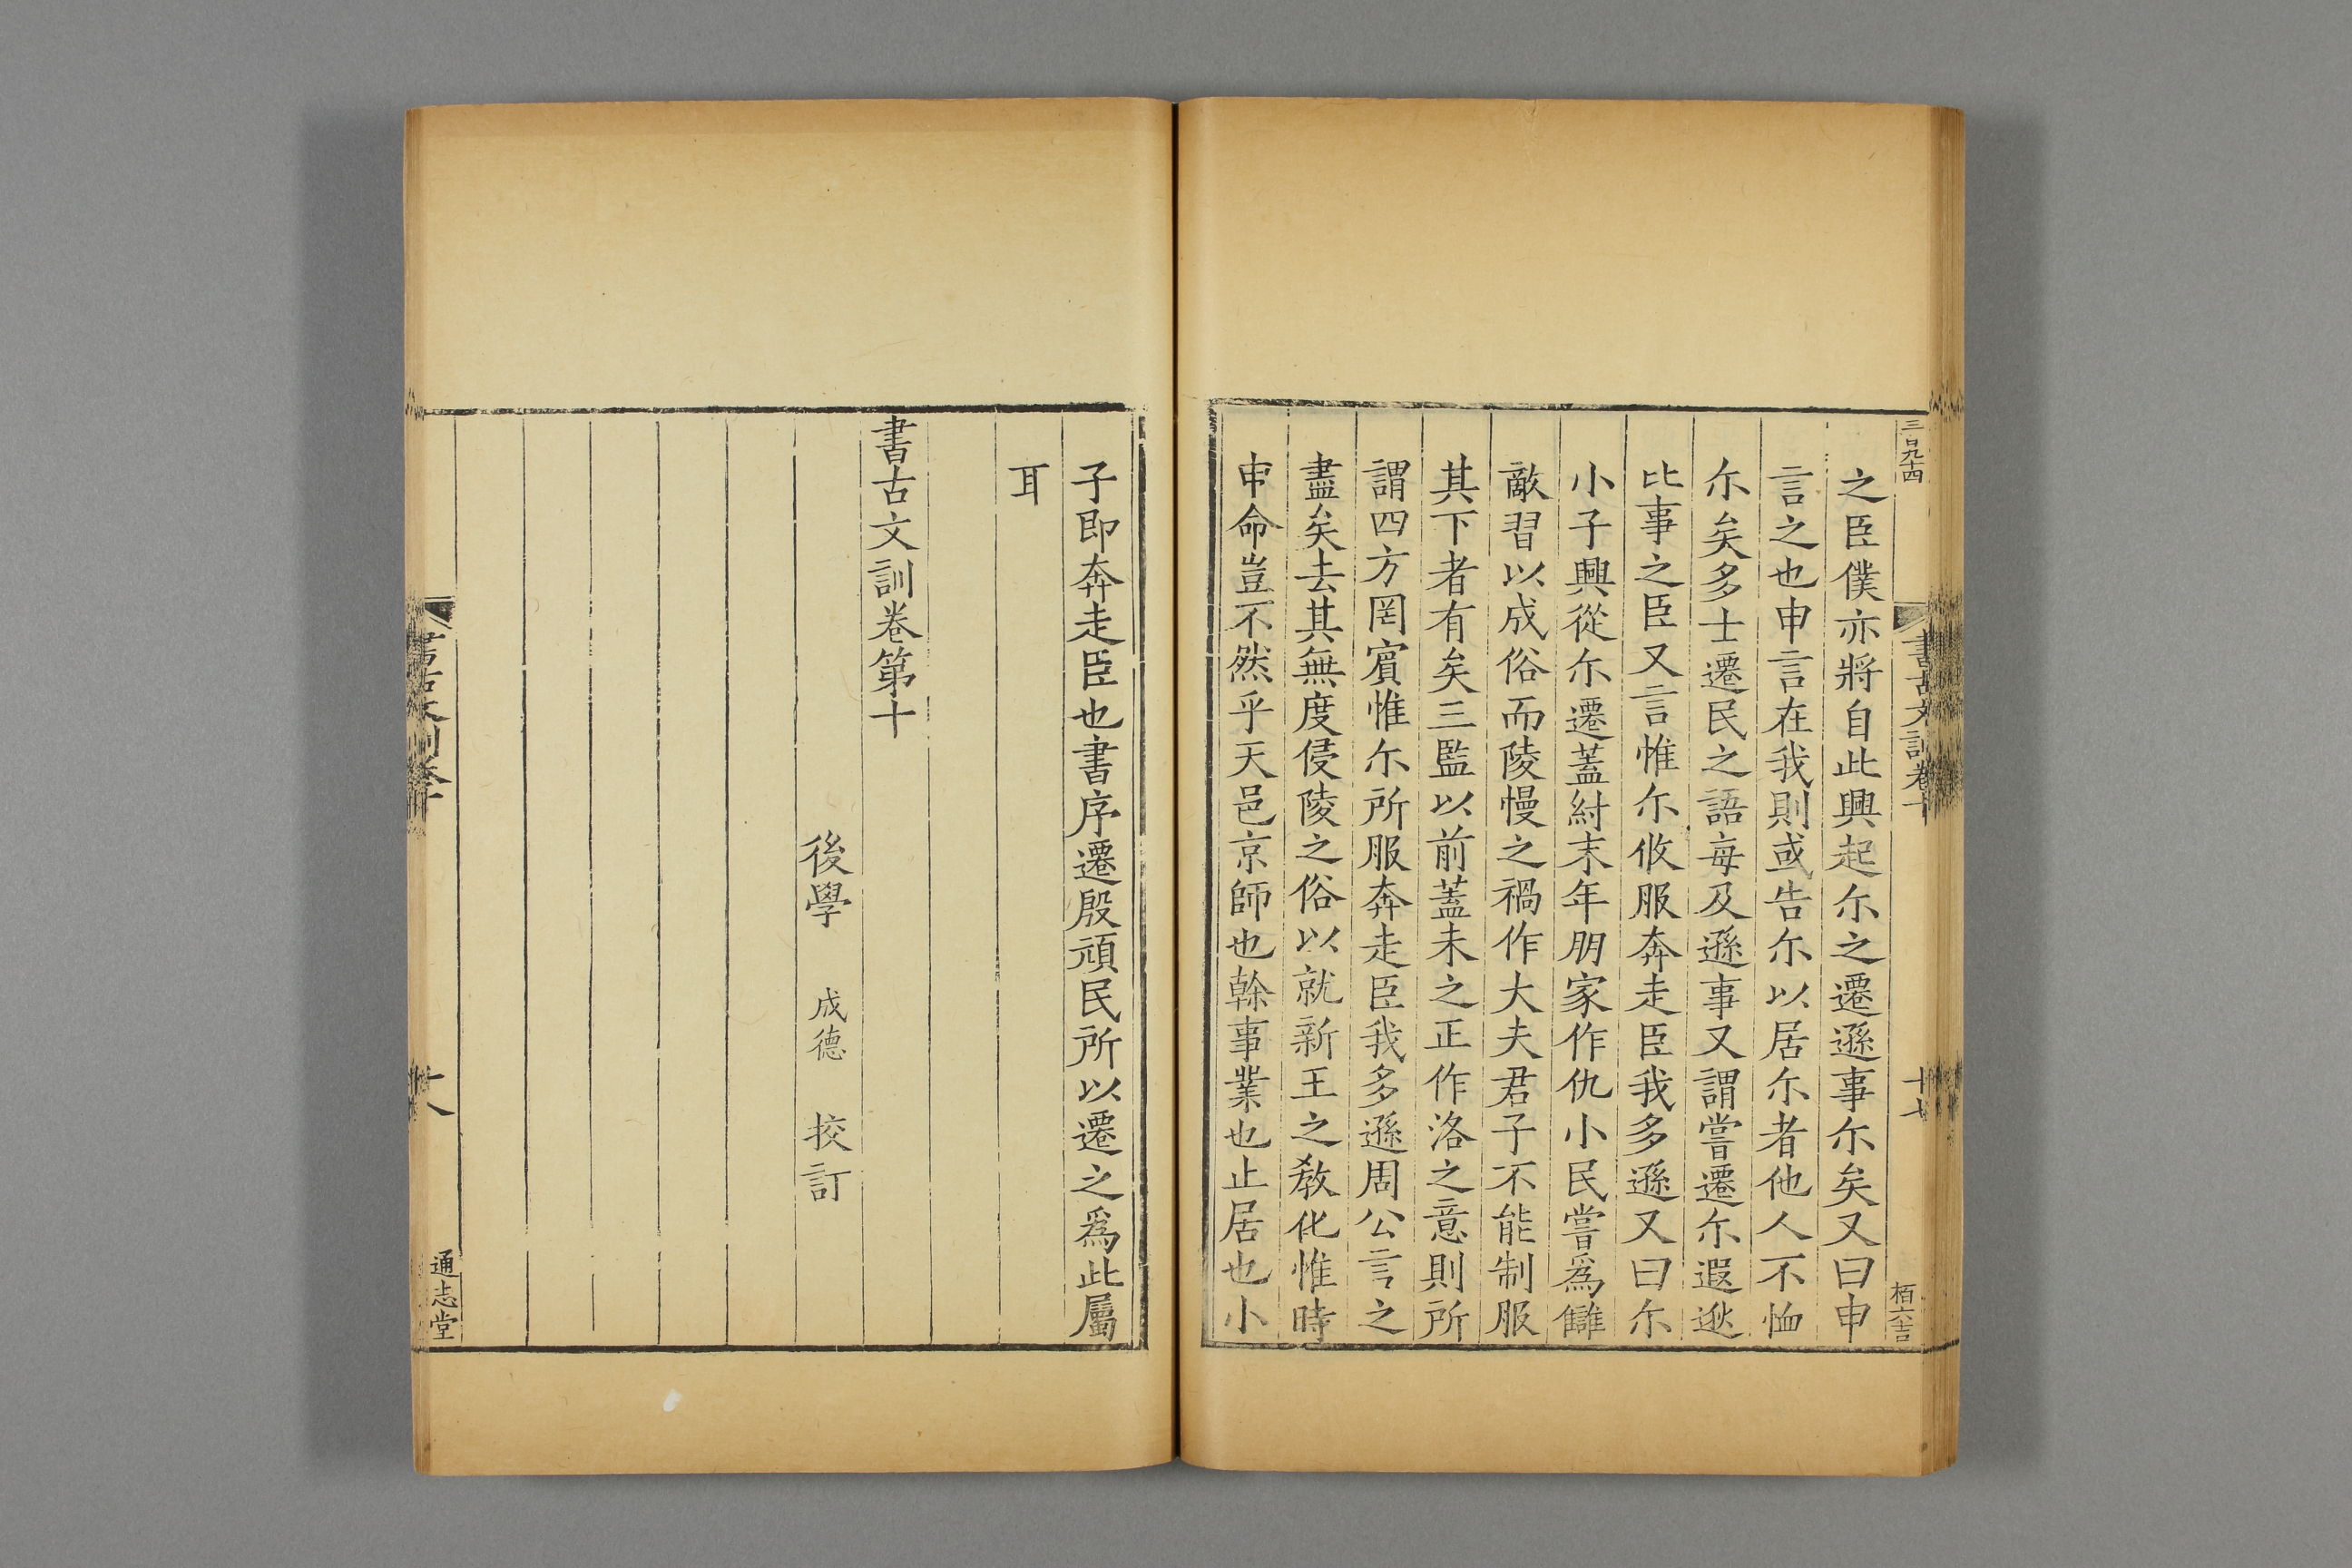 三百九十四
書古文訓卷十
十七
栢六吉
之臣僕亦將自此興起尓之遷遜事尓矣又曰申
言之也申言在我則或告尓以居尓者他人不恤
尓矣多士遷民之語每及遜事又謂嘗遷尓遐逖
比事之臣又言惟尓攸服奔走臣我多遜又曰尓
小子興從尓遷蓋紂末年朋家作仇小民嘗爲讎
敵習以成俗而陵慢之禍作大夫君子不能制服
其下者有矣三監以前蓋未之正作洛之意則所
謂四方罔賔惟尓所服奔走臣我多遜周公言之
盡矣去其無度侵陵之俗以就新王之教化惟時
申命豈不然乎天邑京師也榦事業也止居也小
子即奔走臣也書序遷殷頑民所以遷之爲此屬
耳
書古文訓卷第十
後學 成德 挍訂
書古文訓卷十
十八
通志堂